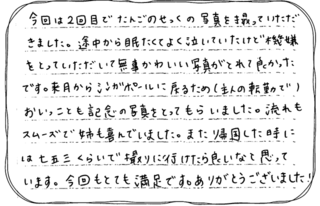 今回は2回目でたんごのせっくの写真を撮っていただ
きました。途中から眠たくてよく泣いていたけど機嫌
をとっていただいて無事かわいい写真がとれて良かった
です。来月からシンガポールに居るため(主人の転勤で)
おいっことも記念の写真をとってもらいました。流れも
スムーズで姉も喜んでいました。また帰国した時に
は七五三くらいで撮りに行けたら良いなと思って
います。今回もとても満足です。ありがとうございました!